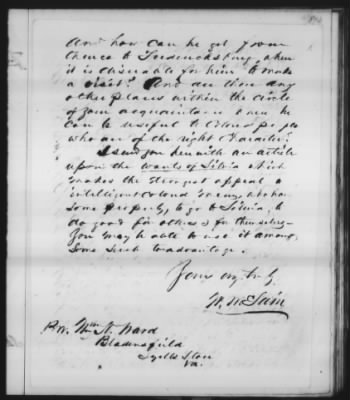 And how can he get from
thence to Fredericksburg, when
it is desirable for him to make
a visit? And are there any
other places within the circle
of your acquaintance where he
can be useful to Colored people
who are of the right Character?
I send you herewith an article
upon the wants of Liberia which
makes the strongest appeal to
intelligent Colored men, who have
some property, to go to Liberia, to
do good for others & for themselves.
You may be able to use it among
some such to advantage.
Yours very truly
W. McLain
Rev. Wm. N. Ward
Bladensfield
Lyells Store
Va.